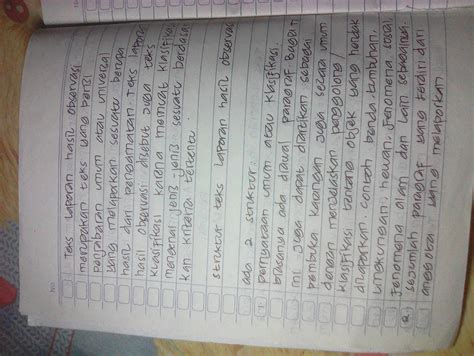 No
Teks laporan hasil observasi
merupakan teks yang berisi
penjabaran umum atau universal
yang melaporkan sesuatu berupa
hasil dari pengamatan. Teks laporan
hasil observasi disebut juga teks
klasifikasi karena memuat klasifikasi
mengenai jenis-jenis sesuatu berdasar
kan kriteria tertentu.
Struktur teks laporan hasil observasi
ada 2 struktur:
1. pernyataan umum atau klasifikasi.
biasanya ada diawal paragraf Bagian
ini juga dapat diartikan sebagai
pembuka karangan juga secara umum
dengan menjelaskan penggolong/
klasifikasi tentang objek yang hendak
dilaporkan contoh benda, tumbuhan,
lingkungan, hewan, fenomena sosial
fenomena alam dan lain sebagainya.
2. sejumlah paragraf yang terdiri dari
anggota yang melaporkan